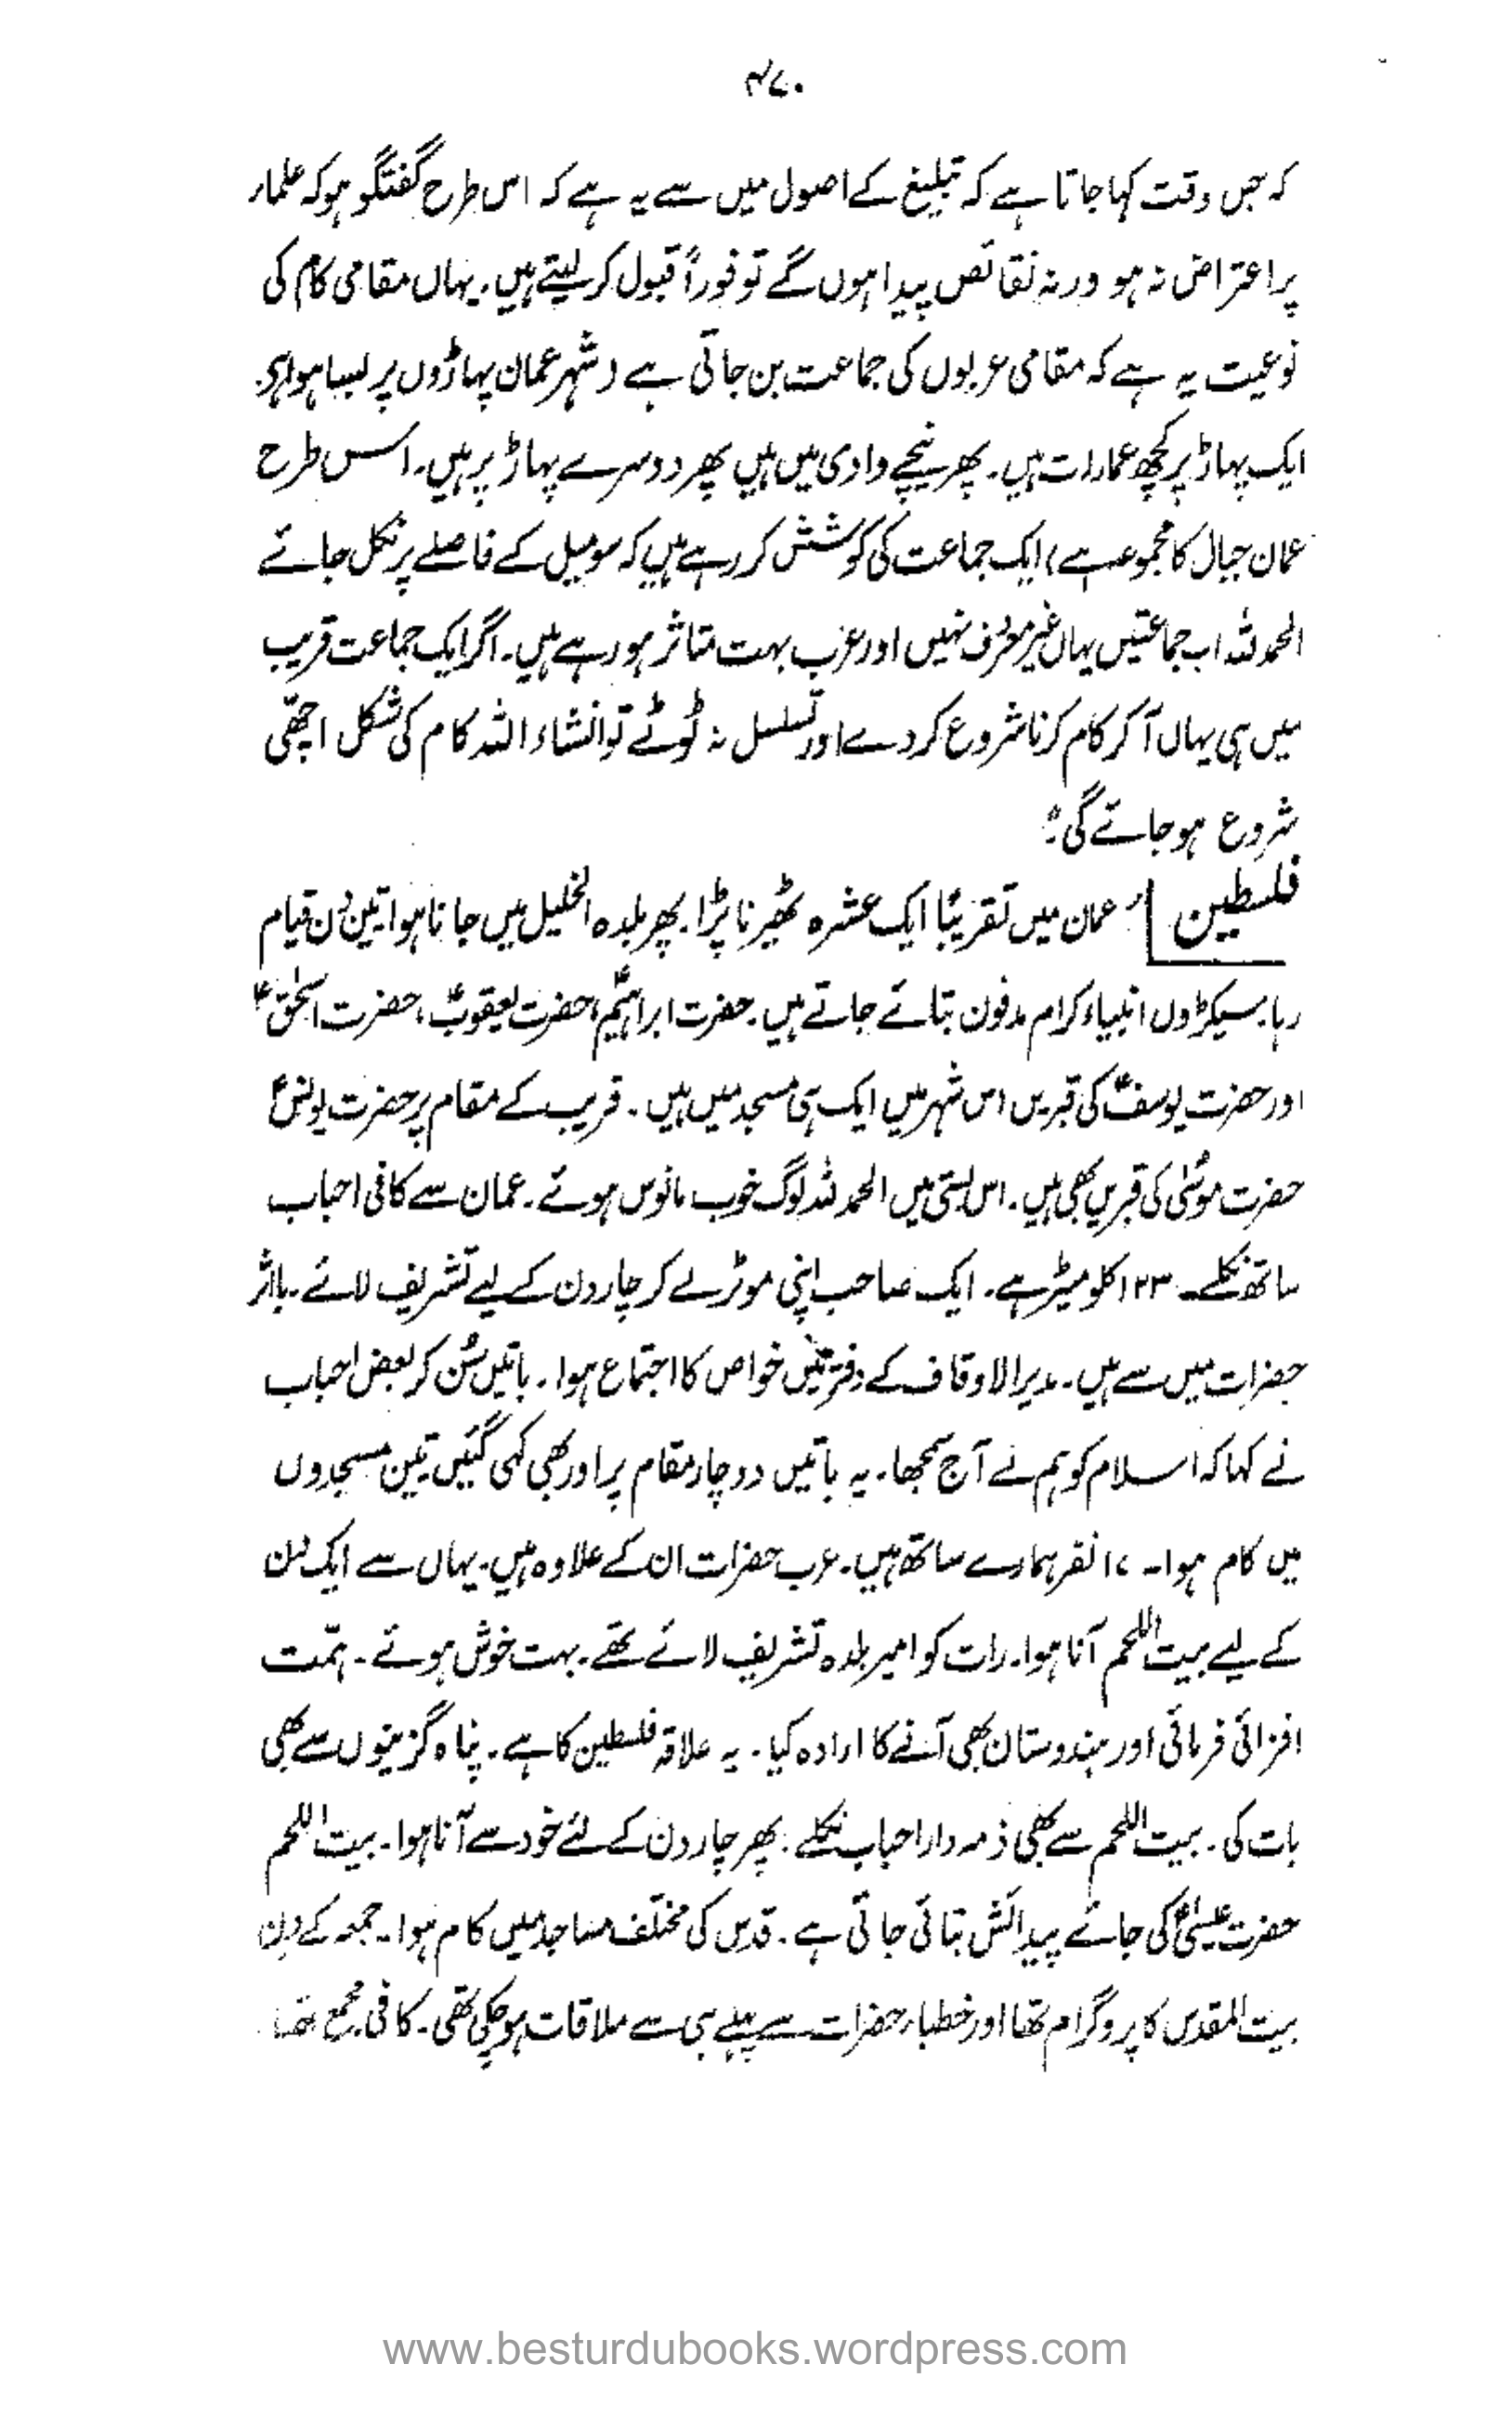 ۴۷۰
کہ جس وقت کہا جاتا ہے کہ تبلیغ کے اصول میں سے یہ ہے کہ اس طرح گفتگو ہو کہ علماء
پر اعتراض نہ ہو ورنہ نقائص پیدا ہوں گے تو فوراً قبول کر لیتے ہیں۔ یہاں مقامی کام کی
نوعیت یہ ہے کہ مقامی عربوں کی جماعت بن جاتی ہے (شہر عمان پہاڑوں پر بسا ہوا ہے۔
ایک پہاڑ پر کچھ عمارات ہیں۔ پھر نیچے وادی میں ہیں پھر دوسرے پہاڑ پر ہیں۔ اس طرح
عمان جبال کا مجموعہ ہے) ایک جماعت کی کوشش کر رہے ہیں کہ سو میل کے فاصلے پر نکل جائے
الحمد للہ اب جماعتیں یہاں غیر معروف نہیں اور عرب بہت متاثر ہو رہے ہیں۔ اگر ایک جماعت قریب
میں ہی یہاں آ کر کام کرنا شروع کر دے اور تسلسل نہ ٹوٹے تو انشاء اللہ کام کی شکل اچھی
شروع ہو جائے گی"
فلسطین "عمان میں تقریبًا ایک عشرہ ٹھیرنا پڑا۔ پھر بلدہ الخلیل میں جانا ہوا تین دن قیام
رہا۔ سیکڑوں انبیاء کرام مدفون بتائے جاتے ہیں۔ حضرت ابراہیمؑ، حضرت یعقوبؑ، حضرت اسحٰقؑ
اور حضرت یوسفؑ کی قبریں اس شہر میں ایک ہی مسجد میں ہیں۔ قریب کے مقام پر حضرت یونسؑ
حضرت موسیٰؑ کی قبریں بھی ہیں۔ اس بستی میں الحمد للہ لوگ خوب مانوس ہوئے۔ عمان سے کافی احباب
ساتھ نکلے۔ ۱۲۳ کلومیٹر ہے۔ ایک صاحب اپنی موٹر لے کر چار دن کے لیے تشریف لائے۔ بااثر
حضرات میں سے ہیں۔ مدیر الاوقاف کے دفتر میں خواص کا اجتماع ہوا۔ باتیں سُن کر بعض احباب
نے کہا کہ اسلام کو ہم نے آج سمجھا۔ یہ باتیں دو چار مقام پر اور بھی کہی گئیں تین مسجدوں
میں کام ہوا۔ ۱۷ نفر ہمارے ساتھ ہیں۔ عرب حضرات ان کے علاوہ ہیں۔ یہاں سے ایک دن
کے لیے بیت اللحم آنا ہوا۔ رات کو امیر بلدہ تشریف لائے تھے۔ بہت خوش ہوئے۔ ہمّت
افزائی فرمائی اور ہندوستان بھی آنے کا ارادہ کیا۔ یہ علاقہ فلسطین کا ہے۔ پناہ گزینوں سے بھی
بات کی۔ بیت اللحم سے بھی ذمہ دار احباب نکلے۔ پھر چار دن کے لئے خود سے آنا ہوا۔ بیت اللحم
حضرت عیسیٰؑ کی جائے پیدائش بتائی جاتی ہے۔ قدس کی مختلف مساجد میں کام ہوا۔ جمعہ کے دن
بیت المقدس کا پروگرام تھا اور خطباء حضرات سے پہلے ہی سے ملاقات ہو چکی تھی۔ کافی مجمع تھا۔
www.besturdubooks.wordpress.com